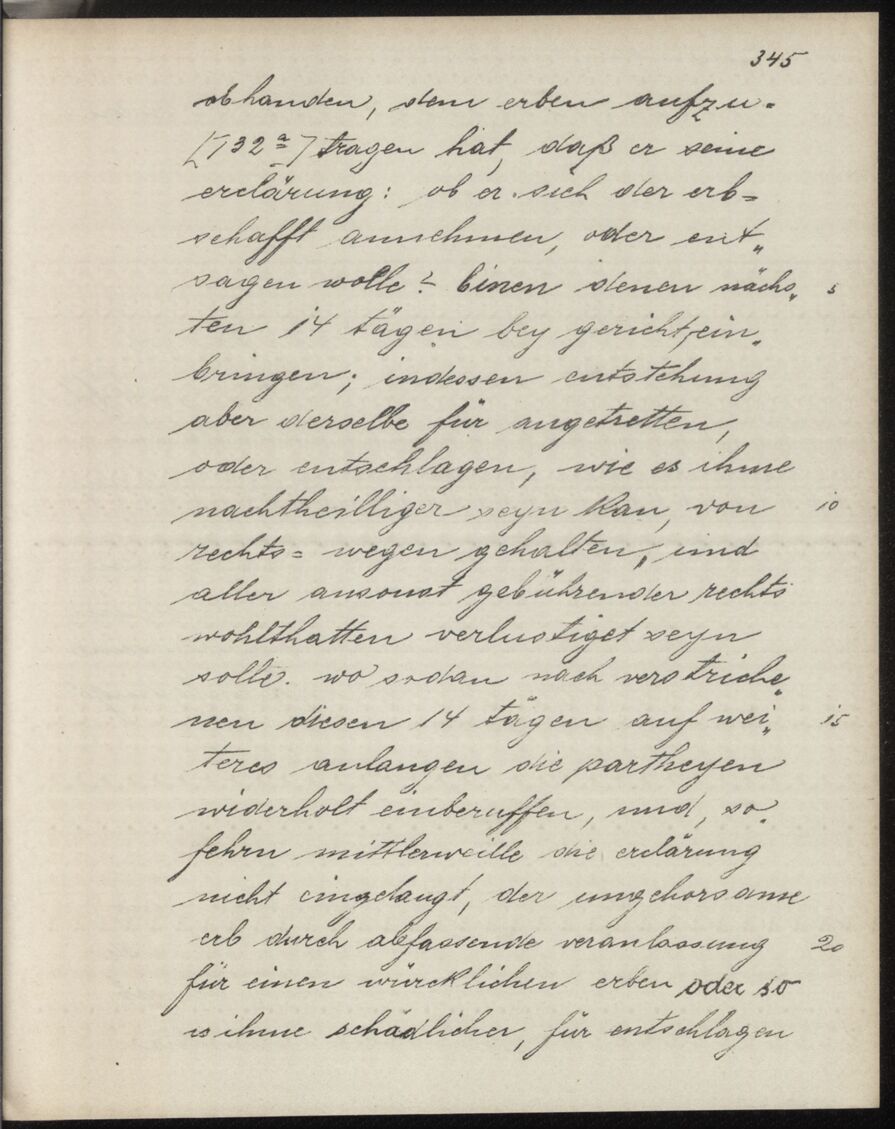 345
obhanden, dem erben aufzu=
[132a] tragen hat, daß er seine
erclärung: ob er sich der erb=
schafft annehmen, oder ent„
sagen wolle? binen denen nächs„ 5
ten 14 tägen bey gericht ein„
bringen; indessen entstehung
aber derselbe für angetretten,
oder entschlagen, wie es ihme
nachtheilliger seyn kan, von 10
rechts= wegen gehalten, und
aller ansonst gebührender rechts
wohlthatten verlustiget seyn
solle. wo sodan nach verstriche„
nen diesen 14 tägen auf wei„ 15
teres anlangen die partheyen
widerholt einberuffen, und, so„
fehrn mittlerweille die erclärung
nicht eingelangt, der ungehorsame
erb durch abfassende veranlassung 20
für einen würcklichen erben oder so
es ihme schädlicher, für entschlagen